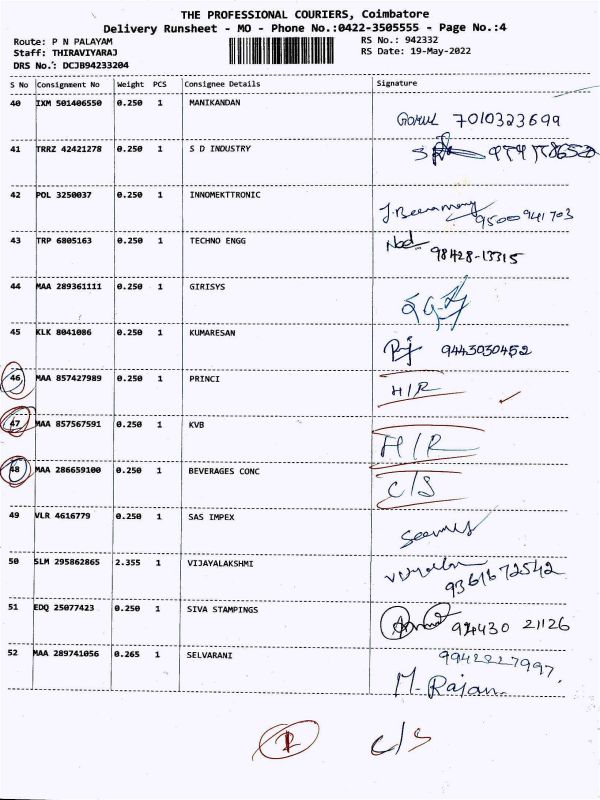 THE PROFESSIONAL COURIERS, Coimbatore
Delivery Runsheet - MO - Phone No.:0422-3505555 - Page No.:4
Route: P N PALAYAM
RS No.: 942332
Staff: THIRAVIYARAJ
RS Date: 19-May-2022
DRS No.: DCJB94233204
S No Consignment No Weight PCS Consignee Details Signature
40 IXM 501406550 0.250 1 MANIKANDAN
7010323699
41 TRRZ 42421278 0.250 1 S D INDUSTRY
42 POL 3250037 0.250 1 INNOMEKTTRONIC
9500941703
43 TRP 6805163 0.250 1 TECHNO ENGG
98428-13315
44 MAA 289361111 0.250 1 GIRISYS
45 KLK 8041086 0.250 1 KUMARESAN
9443030452
46 MAA 857427989 0.250 1 PRINCI
H/R
47 MAA 857567591 0.250 1 KVB
H/R
48 MAA 286659100 0.250 1 BEVERAGES CONC
C/S
49 VLR 4616779 0.250 1 SAS IMPEX
50 SLM 295862865 2.355 1 VIJAYALAKSHMI
9361672542
51 EDQ 25077423 0.250 1 SIVA STAMPINGS
94430 21126
52 MAA 289741056 0.265 1 SELVARANI
9942227997
M. Rajan
C/S